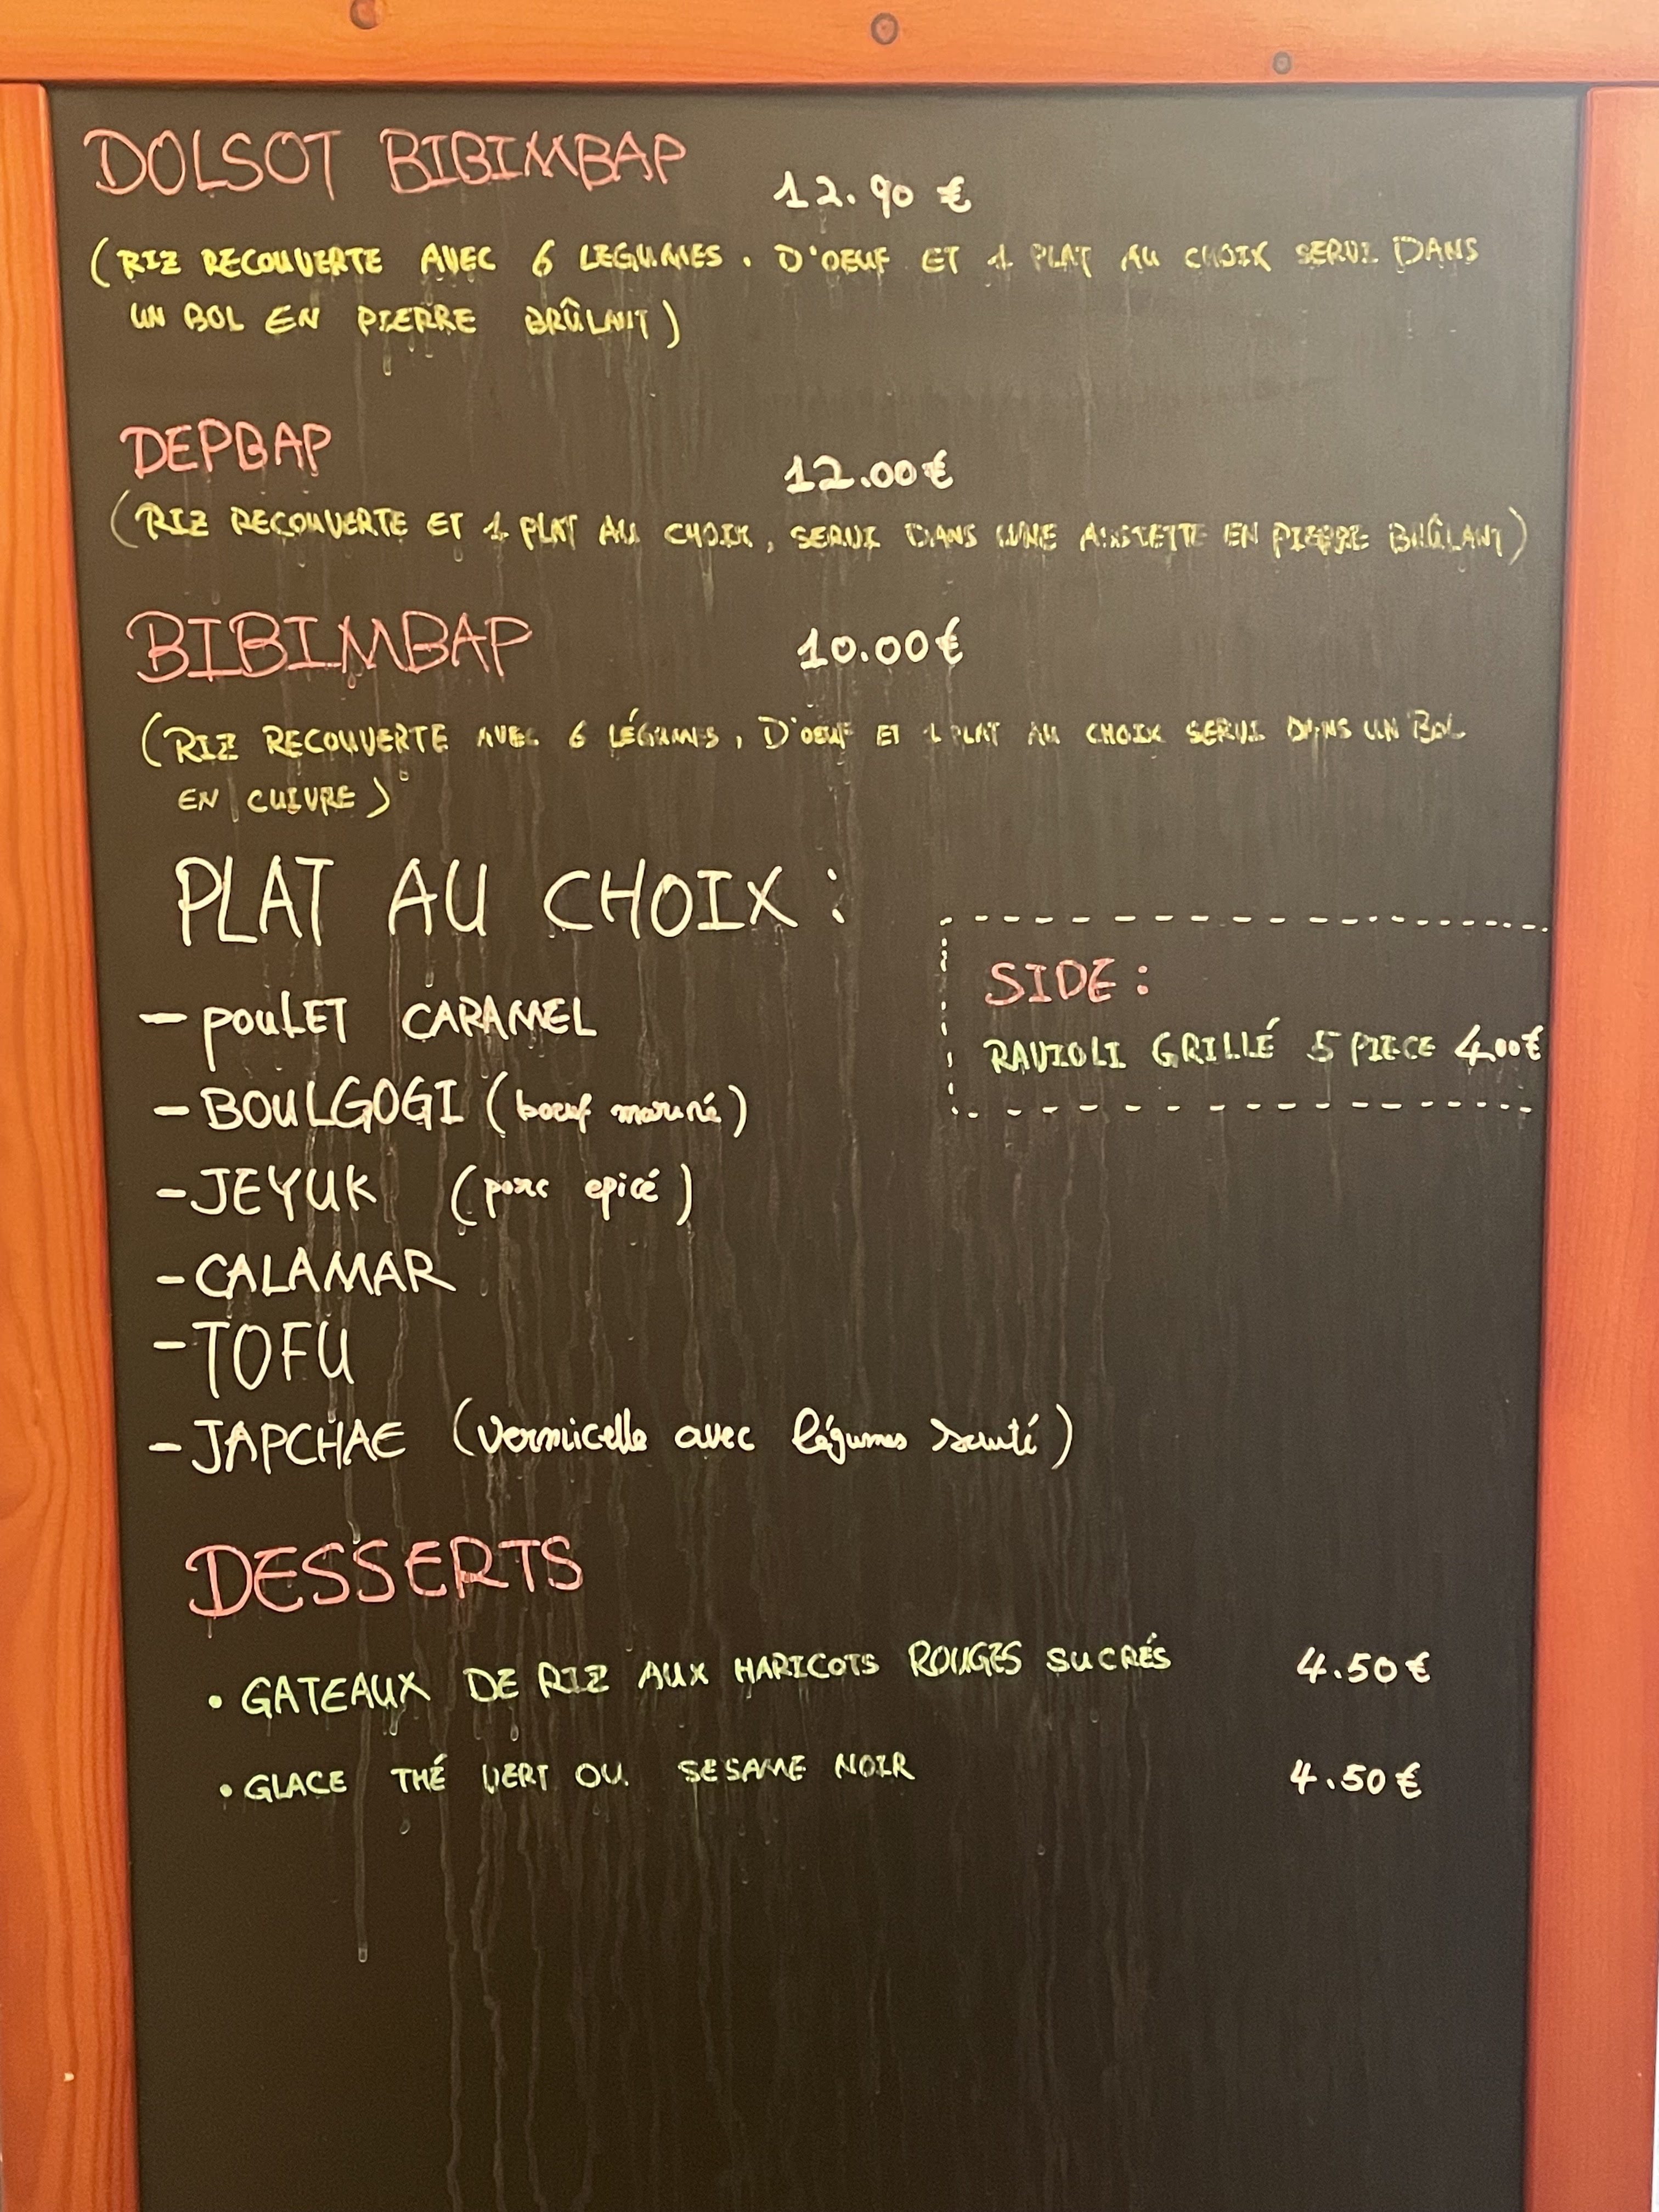 DOLSOT BIBIMBAP 12.90 €
(RIZ RECOUVERTE AVEC 6 LEGUMES. D'OEUF ET 1 PLAT AU CHOIX SERVI DANS
UN BOL EN PIERRE BRÛLANT)
DEPBAP 12.00€
(RIZ RECOUVERTE ET 1 PLAT AU CHOIX, SERVI DANS UNE EN PIERRE BRÛLANT)
BIBIMBAP 10.00€
(RIZ RECOUVERTE AVEC 6 LÉGUMES, D'OEUF ET 1 PLAT AU CHOIX SERVI DANS UN BOL
EN CUIVRE)
PLAT AU CHOIX :
- POULET CARAMEL
- BOULGOGI (boeuf mariné)
- JEYUK (porc epicé)
- CALAMAR
- TOFU
- JAPCHAE (Vermicelle avec légumes sauté)
SIDE :
RAVIOLI GRILLÉ 5 PIECE 4,00€
DESSERTS
• GATEAUX DE RIZ AUX HARICOTS ROUGES SUCRÉS 4.50€
• GLACE THÉ VERT OU SESAME NOIR 4.50€